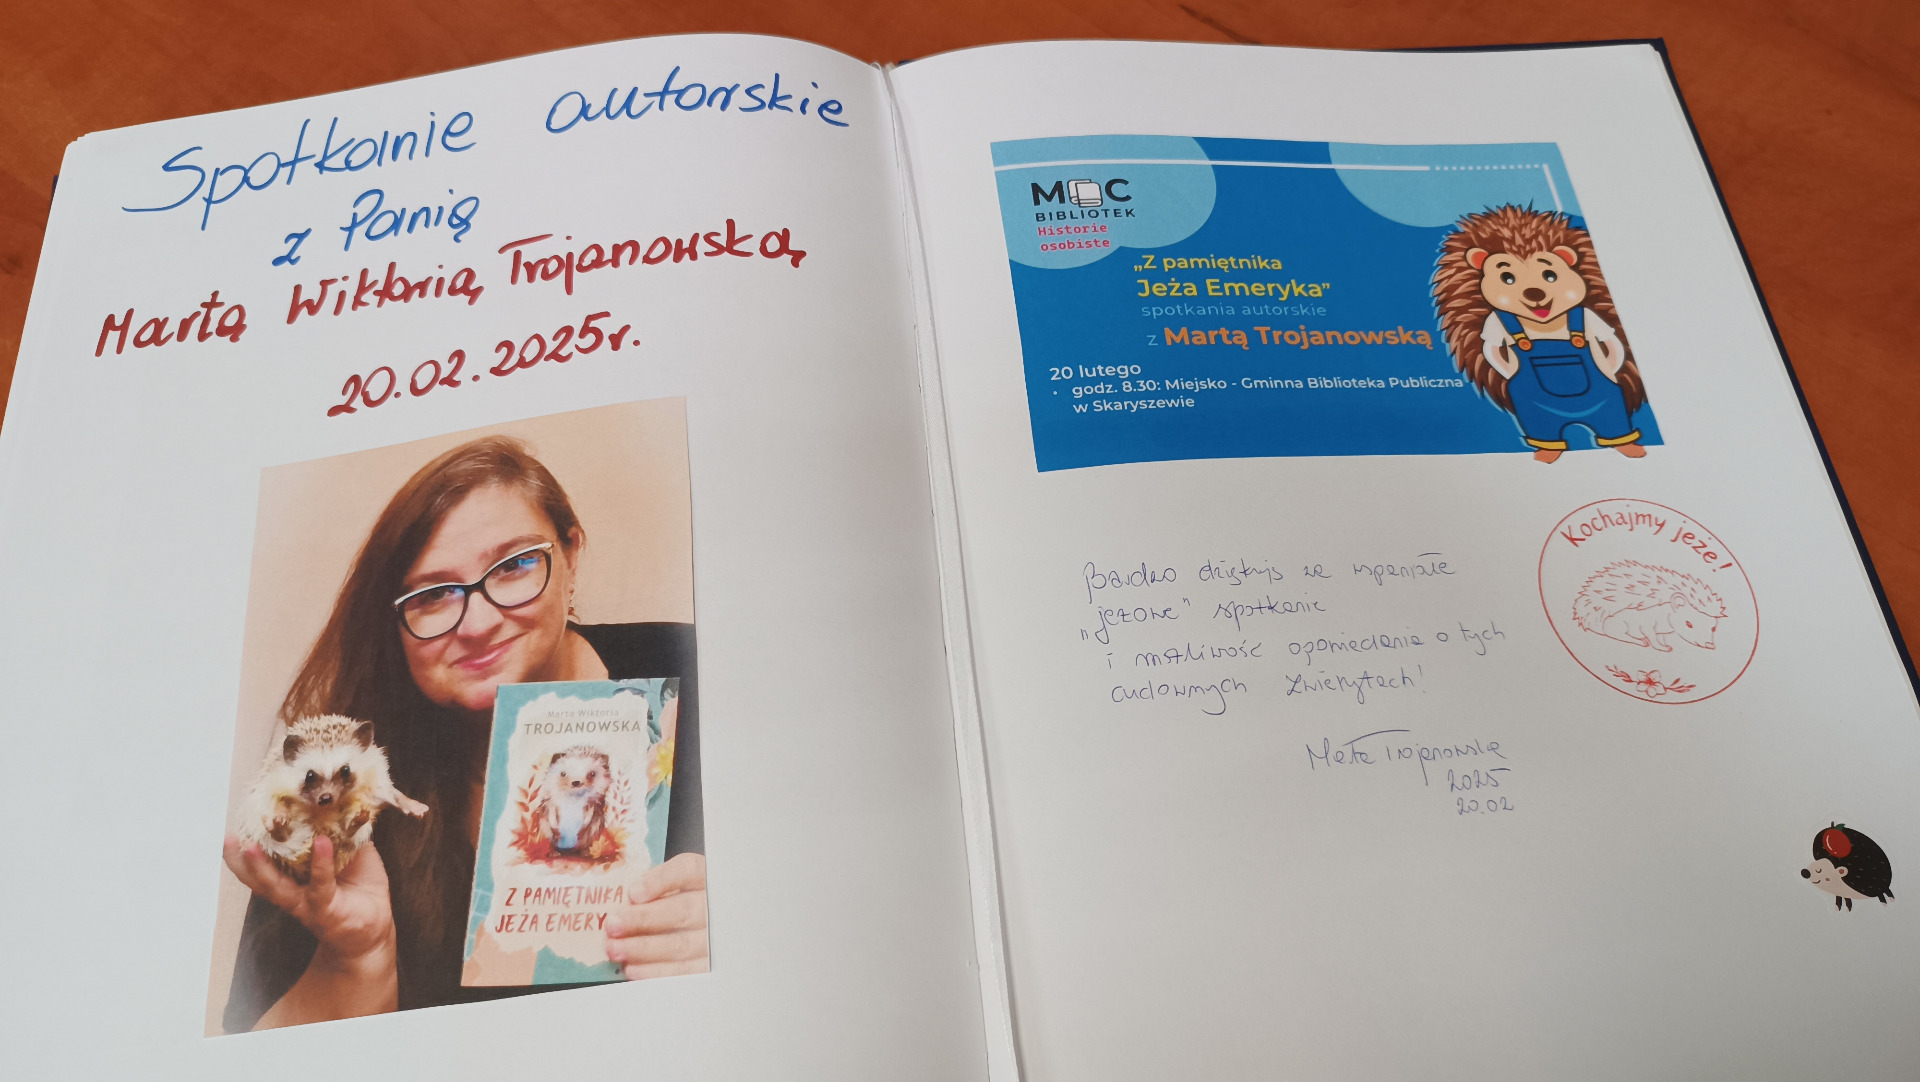 Spotkanie autorskie
z Panią
Martą Wiktorią Trojanowską
20.02.2025r.
Marta Wiktoria
TROJANOWSKA
Z PAMIĘTNIKA
JEŻA EMERY
MOC
BIBLIOTEK
Historie
osobiste
„Z pamiętnika
Jeża Emeryka”
spotkania autorskie
z Martą Trojanowską
20 lutego
• godz. 8.30: Miejsko - Gminna Biblioteka Publiczna
w Skaryszewie
Kochajmy jeże!
Bardzo dziękuję za wspaniałe
„jeżowe” spotkanie
i możliwość opowiadania o tych
cudownych zwierzętach!
Marta Trojanowska
2025
20.02